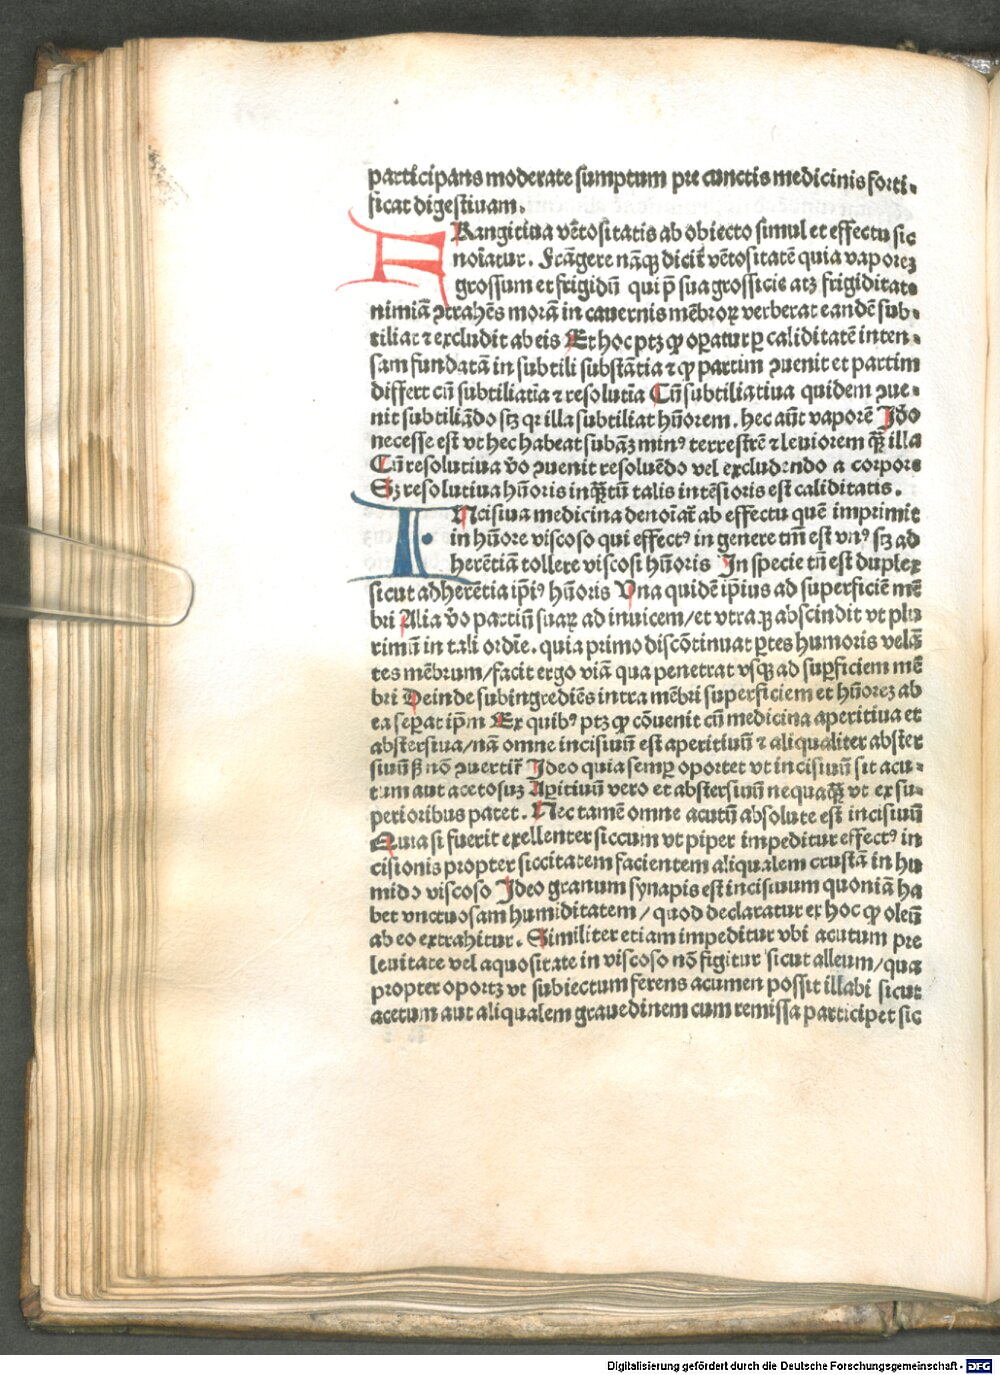 participans moderate sumptum pre cunctis medicinis forti-
ficat digestiuam.
FRangitiua vētositatis ab obiecto simul et effectu sic
noīatur. Frāgere nāqꝫ dicit̄ vētositatē quia vaporeꝫ
grossum et frigidū qui p̄ sua grossicie atꝫ frigiditate
nimiā ꝯtrahēs morā in cauernis mēbroꝝ verberat eandē sub-
tiliat ⁊ excludit ab eis Et hoc ptꝫ ꝙ oꝑatur ꝑ caliditatē inten-
sam fundatā in subtili substātia ⁊ ꝙ partim ꝯuenit et partim
differt cū subtiliatīa ⁊ resolutīa Cū subtiliatiua quidem ꝯue-
nit subtiliādo sꝫ qꝛ illa subtiliat hūorem. hec aūt vaporē Iđo
necesse est vt hec habeat subāꝫ minꝰ terrestrē ⁊ leuiorem qͣꝫ illa
Cū resolutiua v̄o ꝯuenit resoluēdo vel excludendo a corpore
Sꝫ resolutiua hūoris inqͣꝫtū talis intēsioris est caliditatis.
INcisiua medicina denoīat̄ ab effectu quē imprimit
in hūore viscoso qui effectꝰ in genere tm̄ est vnꝰ sꝫ ad
herētiā tollere viscosi hūoris In specie tn̄ est duplex
sicut adherētia ip̄iꝰ hūoris Vna quidē ip̄ius ad superficiē mē
bri Alia v̄o partiū suaꝝ ad inuicem/et vtraqꝫ abscindit vt plu
rimū in tali ordīe. quia primo discōtinuat ꝑtes humoris velā
tes mēbrum/facit ergo viā qua penetrat vsqꝫ ad suꝑficiem mē
bri Deinde subingrediēs intra mēbri superficiem et hūoreꝫ ab
ea seꝑat ip̄m Ex quibꝰ ptꝫ ꝙ cōuenit cū medicina aperitiua et
abstersiua/nā omne incisiuū est aperitiuū ⁊ aliqualiter abster
siuū ß nō ꝯuertit̄ Ideo quia semꝑ oportet vt incisiuū sit acu-
tum aut acetosuꝫ Aꝑitiuū vero et abstersiuū nequaqͣꝫ vt ex su-
perioribus patet. Nec tamē omne acutū absolute est incisiuū
Quia si fuerit exellenter siccum vt piper impeditur effectꝰ in
cisionis propter siccitatem facientem aliqualem crustā in hu
mido viscoso Ideo granum synapis est incisiuum quoniā ha
bet vnctuosam humiditatem/ quod declaratur ex hoc ꝙ oleū
ab eo extrahitur. Similiter etiam impeditur vbi acutum pre
leuitate vel aquositate in viscoso nō figitur sicut alleum/qua
propter oportꝫ vt subiectum ferens acumen possit illabi sicut
acetum aut aliqualem grauedinem cum remissa participet sic
Digitalisierung gefördert durch die Deutsche Forschungsgemeinschaft - DFG